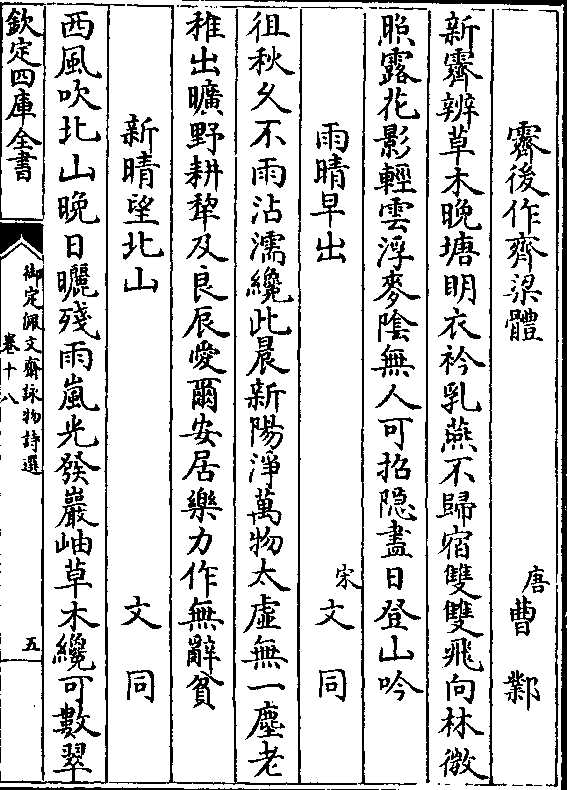 霽後作齊梁體 唐曹鄴
新霽辨草木晚塘明衣衿乳燕不歸宿雙雙飛向林微
照露花影輕雲浮麥陰無人可招隠盡日登山吟
雨晴早出 宋文同
徂秋久不雨沾濡纔此晨新陽淨萬物太虛無一塵老
稚出曠野耕犂及良辰愛爾安居樂力作無辭貧
新晴望北山 文同
西風吹北山晚日曬殘雨嵐光發巖岫草木纔可數翠
欽定四庫全書
御定佩文齋詠物詩選
卷十八
五